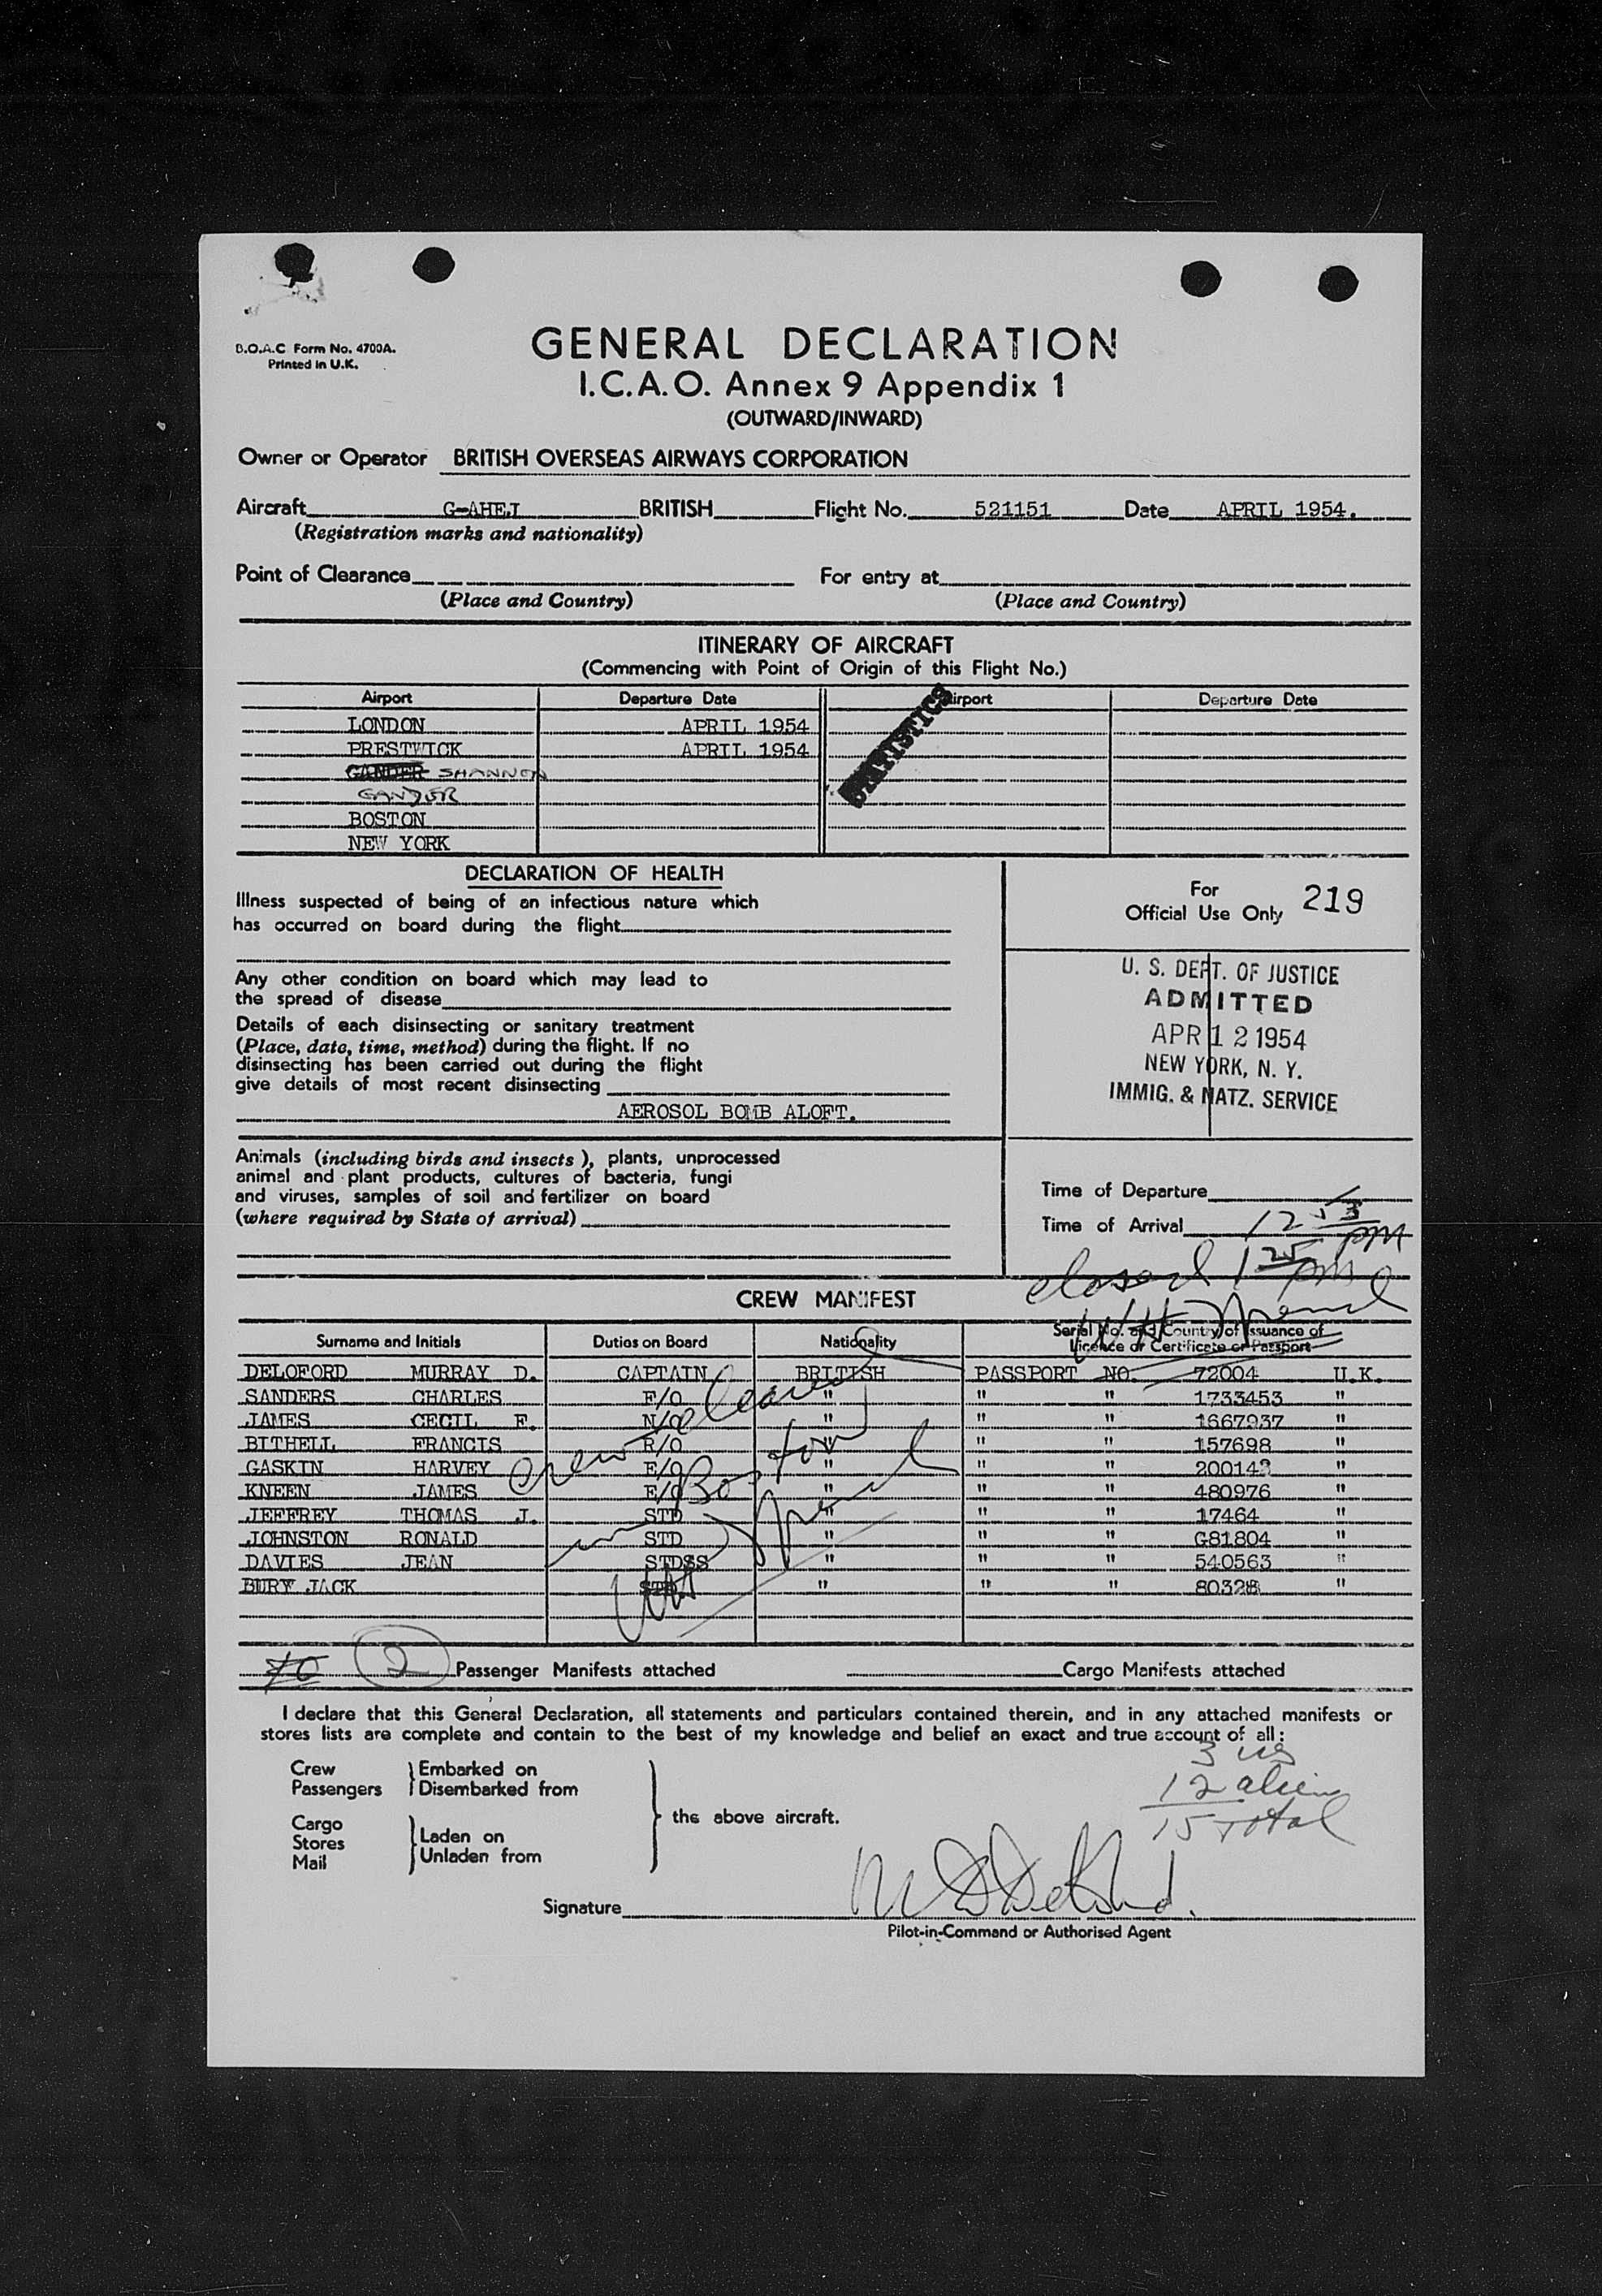 B.O.A.C Form No. 4700A.
Printed in U.K.
GENERAL DECLARATION
I.C.A.O. Annex 9 Appendix 1
(OUTWARD/INWARD)
Owner or Operator BRITISH OVERSEAS AIRWAYS CORPORATION
Aircraft G-AHEJ BRITISH Flight No. 521151 Date APRIL 1954.
(Registration marks and nationality)
Point of Clearance For entry at
(Place and Country) (Place and Country)
ITINERARY OF AIRCRAFT
(Commencing with Point of Origin of this Flight No.)
Airport Departure Date Airport Departure Date
STATISTICS
LONDON APRIL 1954
PRESTWICK APRIL 1954
GANDER SHANNON
GANDER
BOSTON
NEW YORK
DECLARATION OF HEALTH
Illness suspected of being of an infectious nature which
has occurred on board during the flight
Any other condition on board which may lead to
the spread of disease
Details of each disinsecting or sanitary treatment
(Place, date, time, method) during the flight. If no
disinsecting has been carried out during the flight
give details of most recent disinsecting
AEROSOL BOMB ALOFT.
Animals (including birds and insects), plants, unprocessed
animal and plant products, cultures of bacteria, fungi
and viruses, samples of soil and fertilizer on board
(where required by State of arrival)
For
Official Use Only 219
U. S. DEPT. OF JUSTICE
ADMITTED
APR 12 1954
NEW YORK, N. Y.
IMMIG. & NATZ. SERVICE
Time of Departure
Time of Arrival 12 53 PM
closed 1 25 PM
CREW MANIFEST
Surname and Initials Duties on Board Nationality Serial No. and Country of Issuance of
Licence or Certificate or Passport
DELOFORD MURRAY D. CAPTAIN BRITISH PASSPORT NO. 72004 U.K.
SANDERS CHARLES F/O " " " 1733453 "
JAMES CECIL F. N/O " " " 1667937 "
BITHELL FRANCIS R/O " " " 157698 "
GASKIN HARVEY E/O " " " 200143 "
KNEEN JAMES E/O " " " 480976 "
JEFFREY THOMAS J. STD " " " 17464 "
JOHNSTON RONALD STD " " " G81804 "
DAVIES JEAN STDSS " " " 540563 "
BURY JACK STD " " " 80328 "
Crew cleared
Boston
2 Passenger Manifests attached Cargo Manifests attached
I declare that this General Declaration, all statements and particulars contained therein, and in any attached manifests or
stores lists are complete and contain to the best of my knowledge and belief an exact and true account of all:
3 US
12 alien
15 total
Crew Embarked on
Passengers Disembarked from
the above aircraft.
Cargo
Stores Laden on
Mail Unladen from
Signature
Pilot-in-Command or Authorised Agent